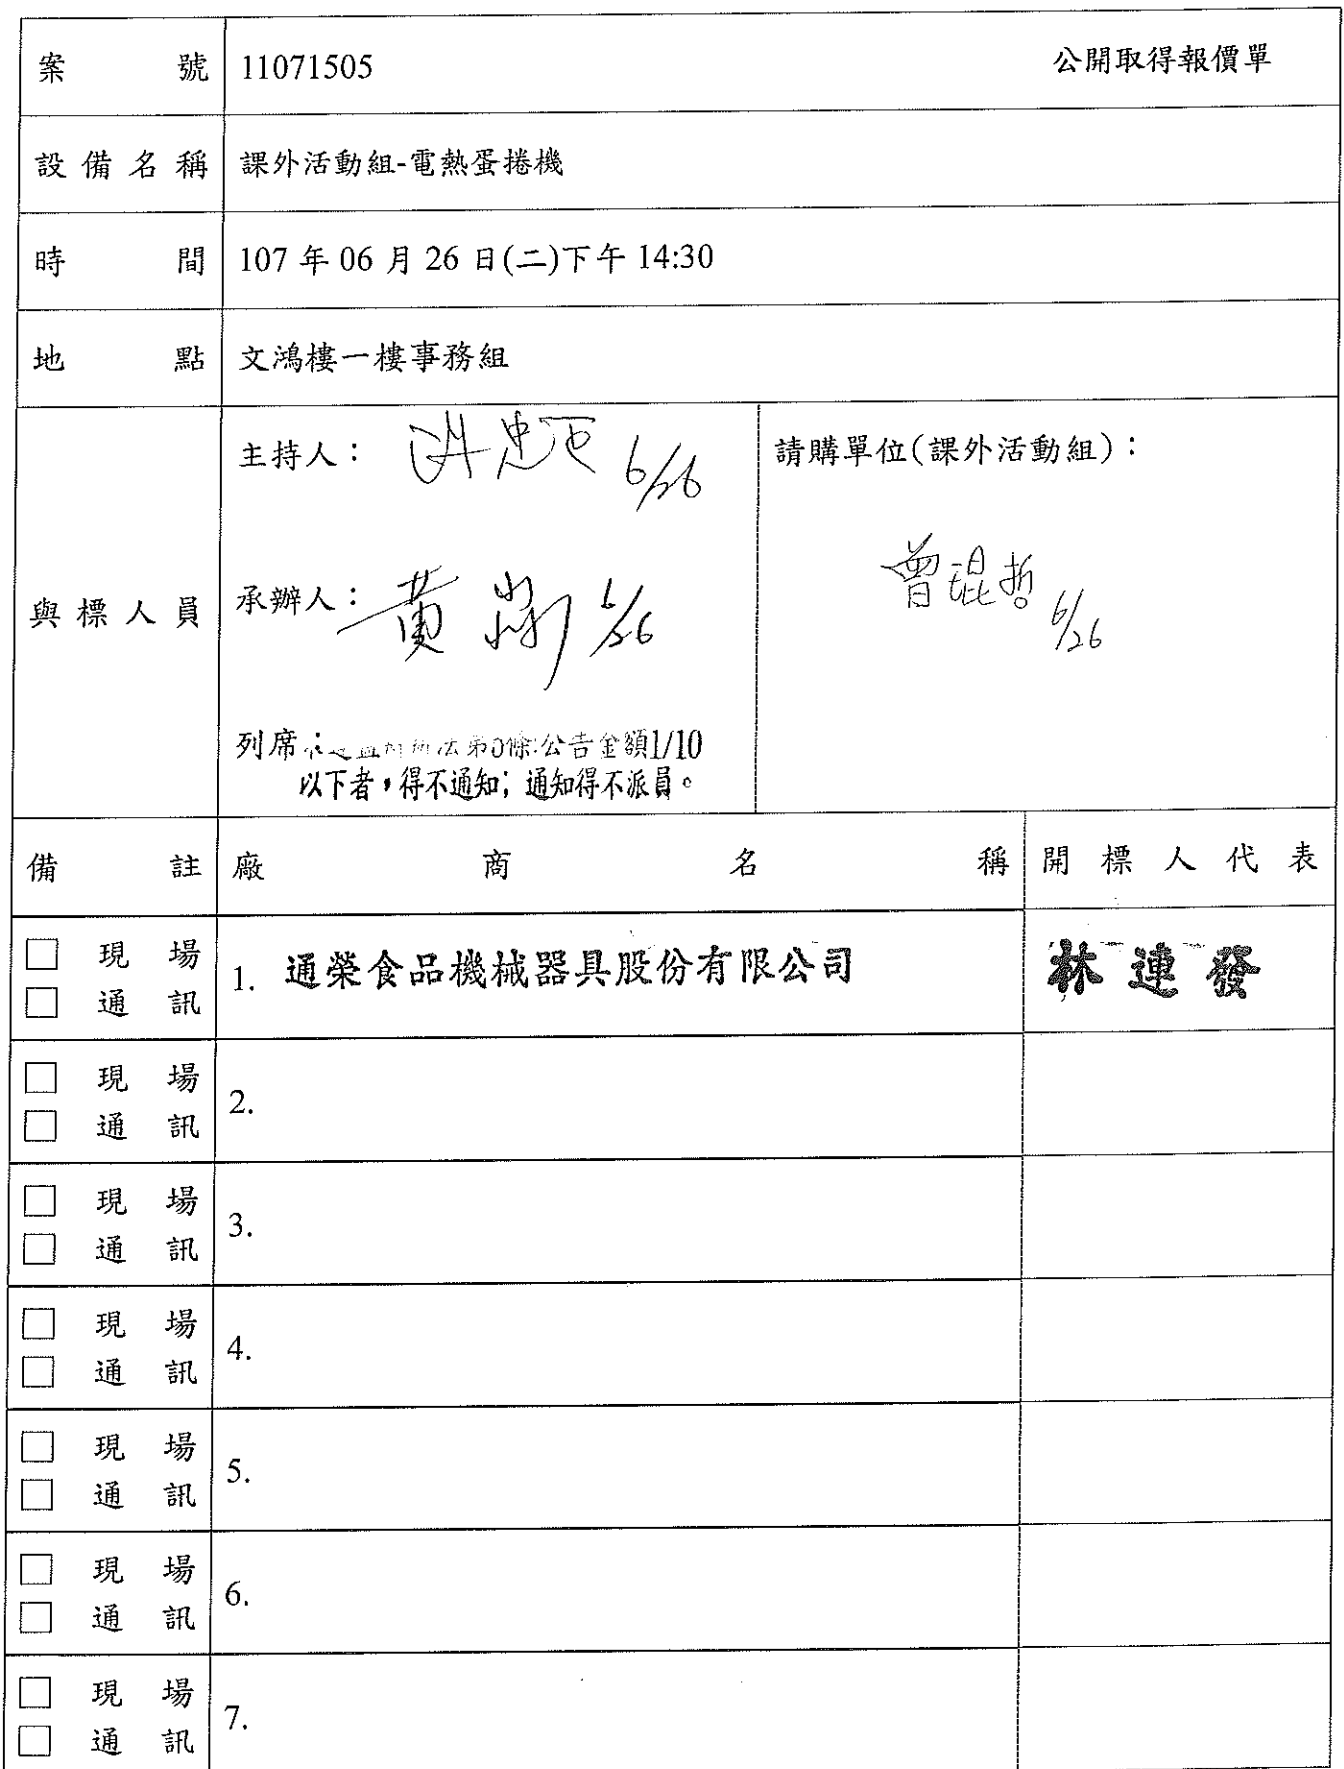 案號 11071505 公開取得報價單
設備名稱 課外活動組-電熱蛋捲機
時間 107 年 06 月 26 日(二)下午 14:30
地點 文鴻樓一樓事務組
與標人員
主持人： 6/26
請購單位(課外活動組)：
曾琨哲 6/26
承辦人：黃 6/26
列席： 法第 條:公告金額1/10
以下者，得不通知；通知得不派員。
備註 廠商名稱 開標人代表
□ 現場
□ 通訊
1. 通榮食品機械器具股份有限公司 林連發
□ 現場
□ 通訊
2.
□ 現場
□ 通訊
3.
□ 現場
□ 通訊
4.
□ 現場
□ 通訊
5.
□ 現場
□ 通訊
6.
□ 現場
□ 通訊
7.